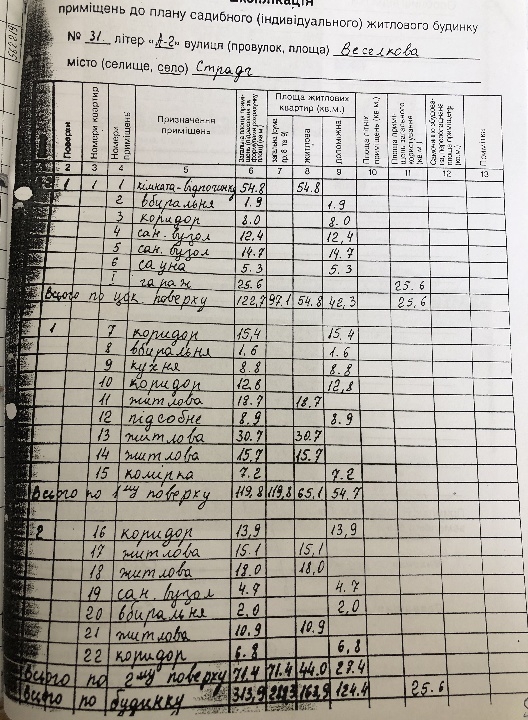 Експлікація
приміщень до плану садибного (індивідуального) житлового будинку
№ 31 літер «А-2» вулиця (провулок, площа) Веселкова
місто (селище, село) Страдч
Поверхи Номери квартир Номери приміщень Призначення приміщень Площа житлових квартир (кв.м.) загальна (сума гр. 8 та 9) житлова допоміжна Примітка
2 3 4 5 6 7 8 9 10 11 12 13
1 1 1 кімната-відпочинку 54.8 54.8
2 вбиральня 1.9 1.9
3 коридор 8.0 8.0
4 сан. вузол 12.4 12,4
5 сан. вузол 14.7 14.7
6 сауна 5.3 5.3
I гараж 25.6 25.6
Всього по цок. поверху 122,7 97.1 54.8 42,3 25,6
1 7 коридор 15,4 15.4
8 вбиральня 1.6 1.6
9 кухня 8.8 8.8
10 коридор 12,8 12,8
11 житлова 18.7 18.7
12 підсобне 8,9 8,9
13 житлова 30.7 30.7
14 житлова 15,7 15,7
15 комірка 7.2 7.2
Всього по 1му поверху 119,8 119,8 65,1 54.7
2 16 коридор 13,9 13,9
17 житлова 15.1 15,1
18 житлова 18.0 18,0
19 сан. вузол 4.7 4.7
20 вбиральня 2,0 2,0
21 житлова 10.9 10.9
22 коридор 6.8 6,8
Всього по 2му поверху 71.4 71.4 44.0 27.4
Всього по будинку 313,9 163,9 124.4 25.6